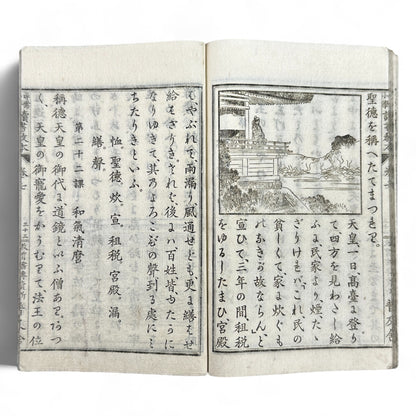 聖德を稱へたてまつりき。
天皇一日高臺に登り
て四方を見わさし給
ふに民家より煙た丶
ざりければこれ民の
貧しくて家に炊ぐも
のなきが故ならんと
宣ひて三年の間租税
をゆるしたまひ宮殿
やぶれて雨漏り風通せども更に繕はせ
給はざりきされば後には百姓皆ゆたかに
なりゆきて其のよろこぶの聲到る處にみ
ちたりきといふ
恤聖德、炊、宣、租税、宮殿、漏。
繕、聲。
第二十二課　和氣淸麿
稱德天皇の御代に道鏡といふ僧ありあつ
く天皇の御寵愛をかうむりて法王の位